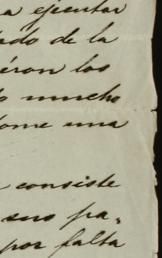 a ejecutar
ado de la
éron los
o mucho
ome una
consiste
sus pa-
por falta